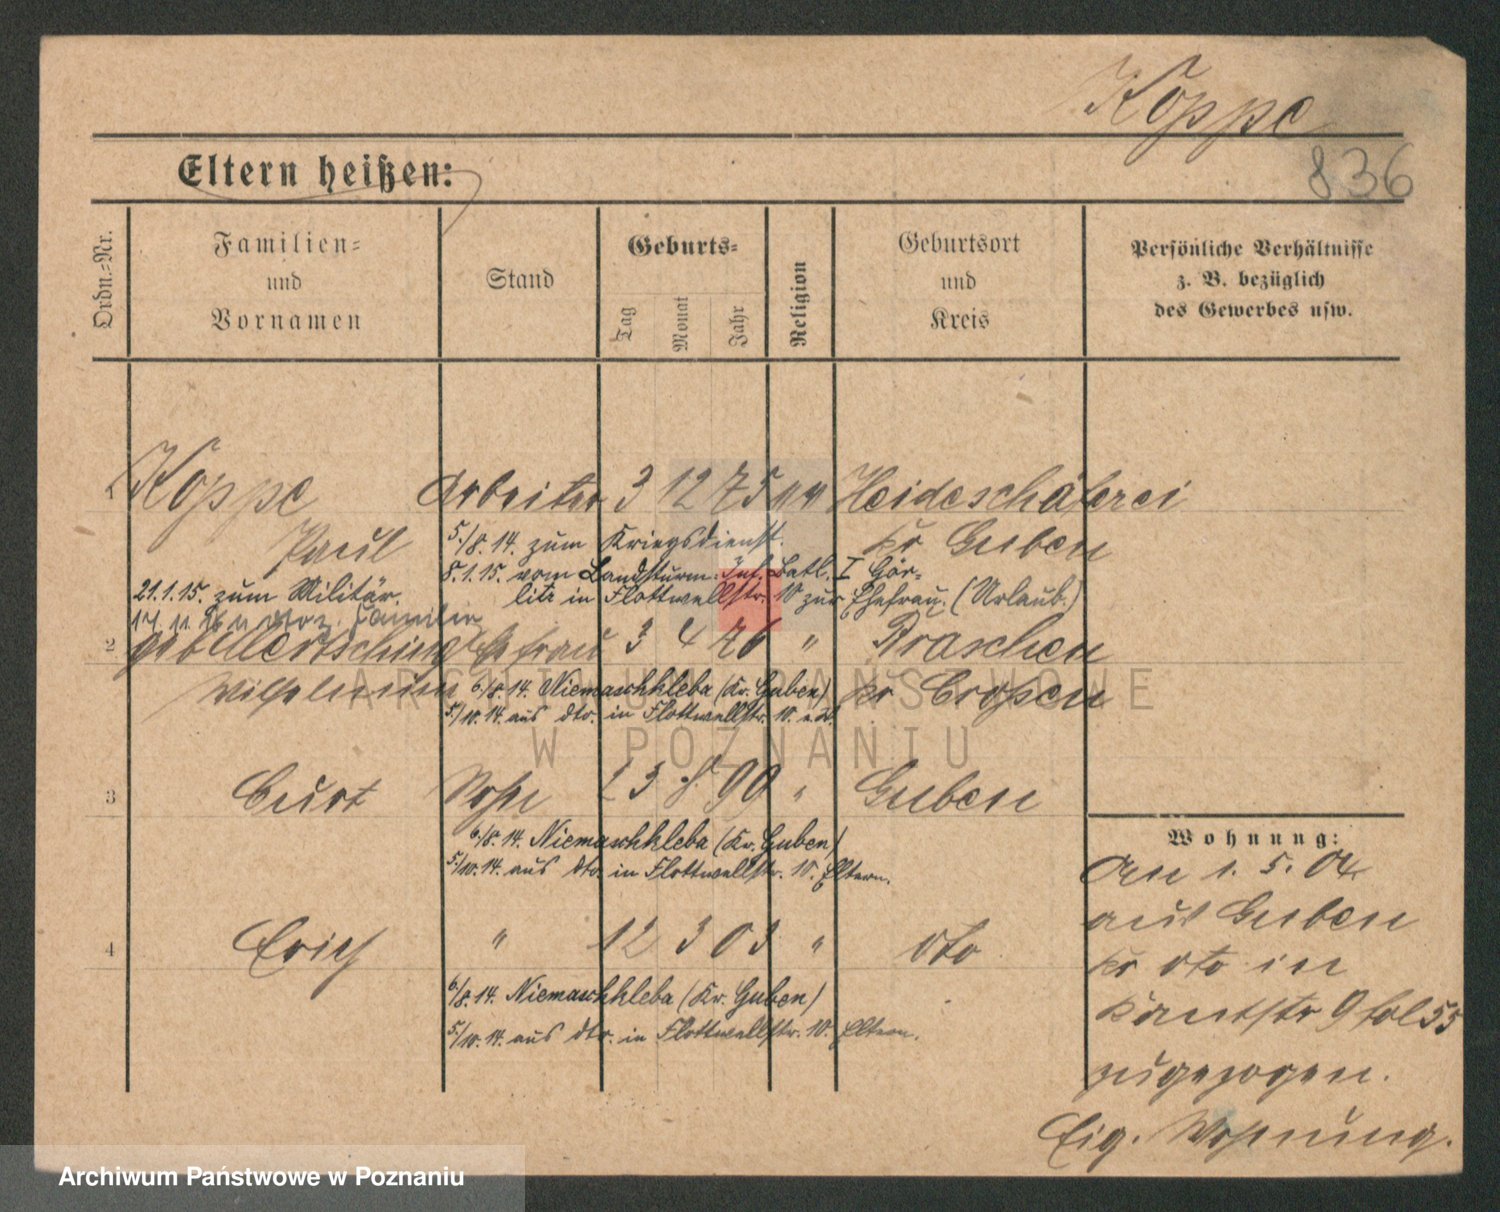 Koppe
836
Eltern heißen:
Ordn.-Nr.
Familien-
und
Vornamen
Stand
Geburts-
Tag
Monat
Jahr
Religion
Geburtsort
und
Kreis
Persönliche Verhältnisse
z. B. bezüglich
des Gewerbes usw.
1 Koppe Arbeiter 3 12 75 Heideschäferei
Paul 5./8.14. zum Kriegsdienst. Kr Guben
8.1.15. vom Landsturm-Inf. Batl. I Gör-
21.1.15. zum Militär. litz in Flottwellstr. 10 zur Ehefrau. (Urlaub.)
2 geb Mertsching Ehefrau 3 4 76 " Braschen
Wilhelmine 6./8.14. Niemaschkleba (Kr. Guben) Kr Crossen
5./10.14. aus dto. in Flottwellstr. 10.
3 Curt Sohn 23 8 99 " Guben
6./8.14. Niemaschkleba (Kr. Guben)
5./10.14. aus dto. in Flottwellstr. 10. Eltern.
4 Erich " 12 3 03 " dto
6./8.14. Niemaschkleba (Kr. Guben)
5./10.14. aus dto. in Flottwellstr. 10. Eltern.
Wohnung:
Am 1. 5. 04
aus Guben
Kr dto in
Kautstr 9 fol 55
zugezogen.
Eig. Wohnung.
ARCHIWUM PAŃSTWOWE
W POZNANIU
Archiwum Państwowe w Poznaniu